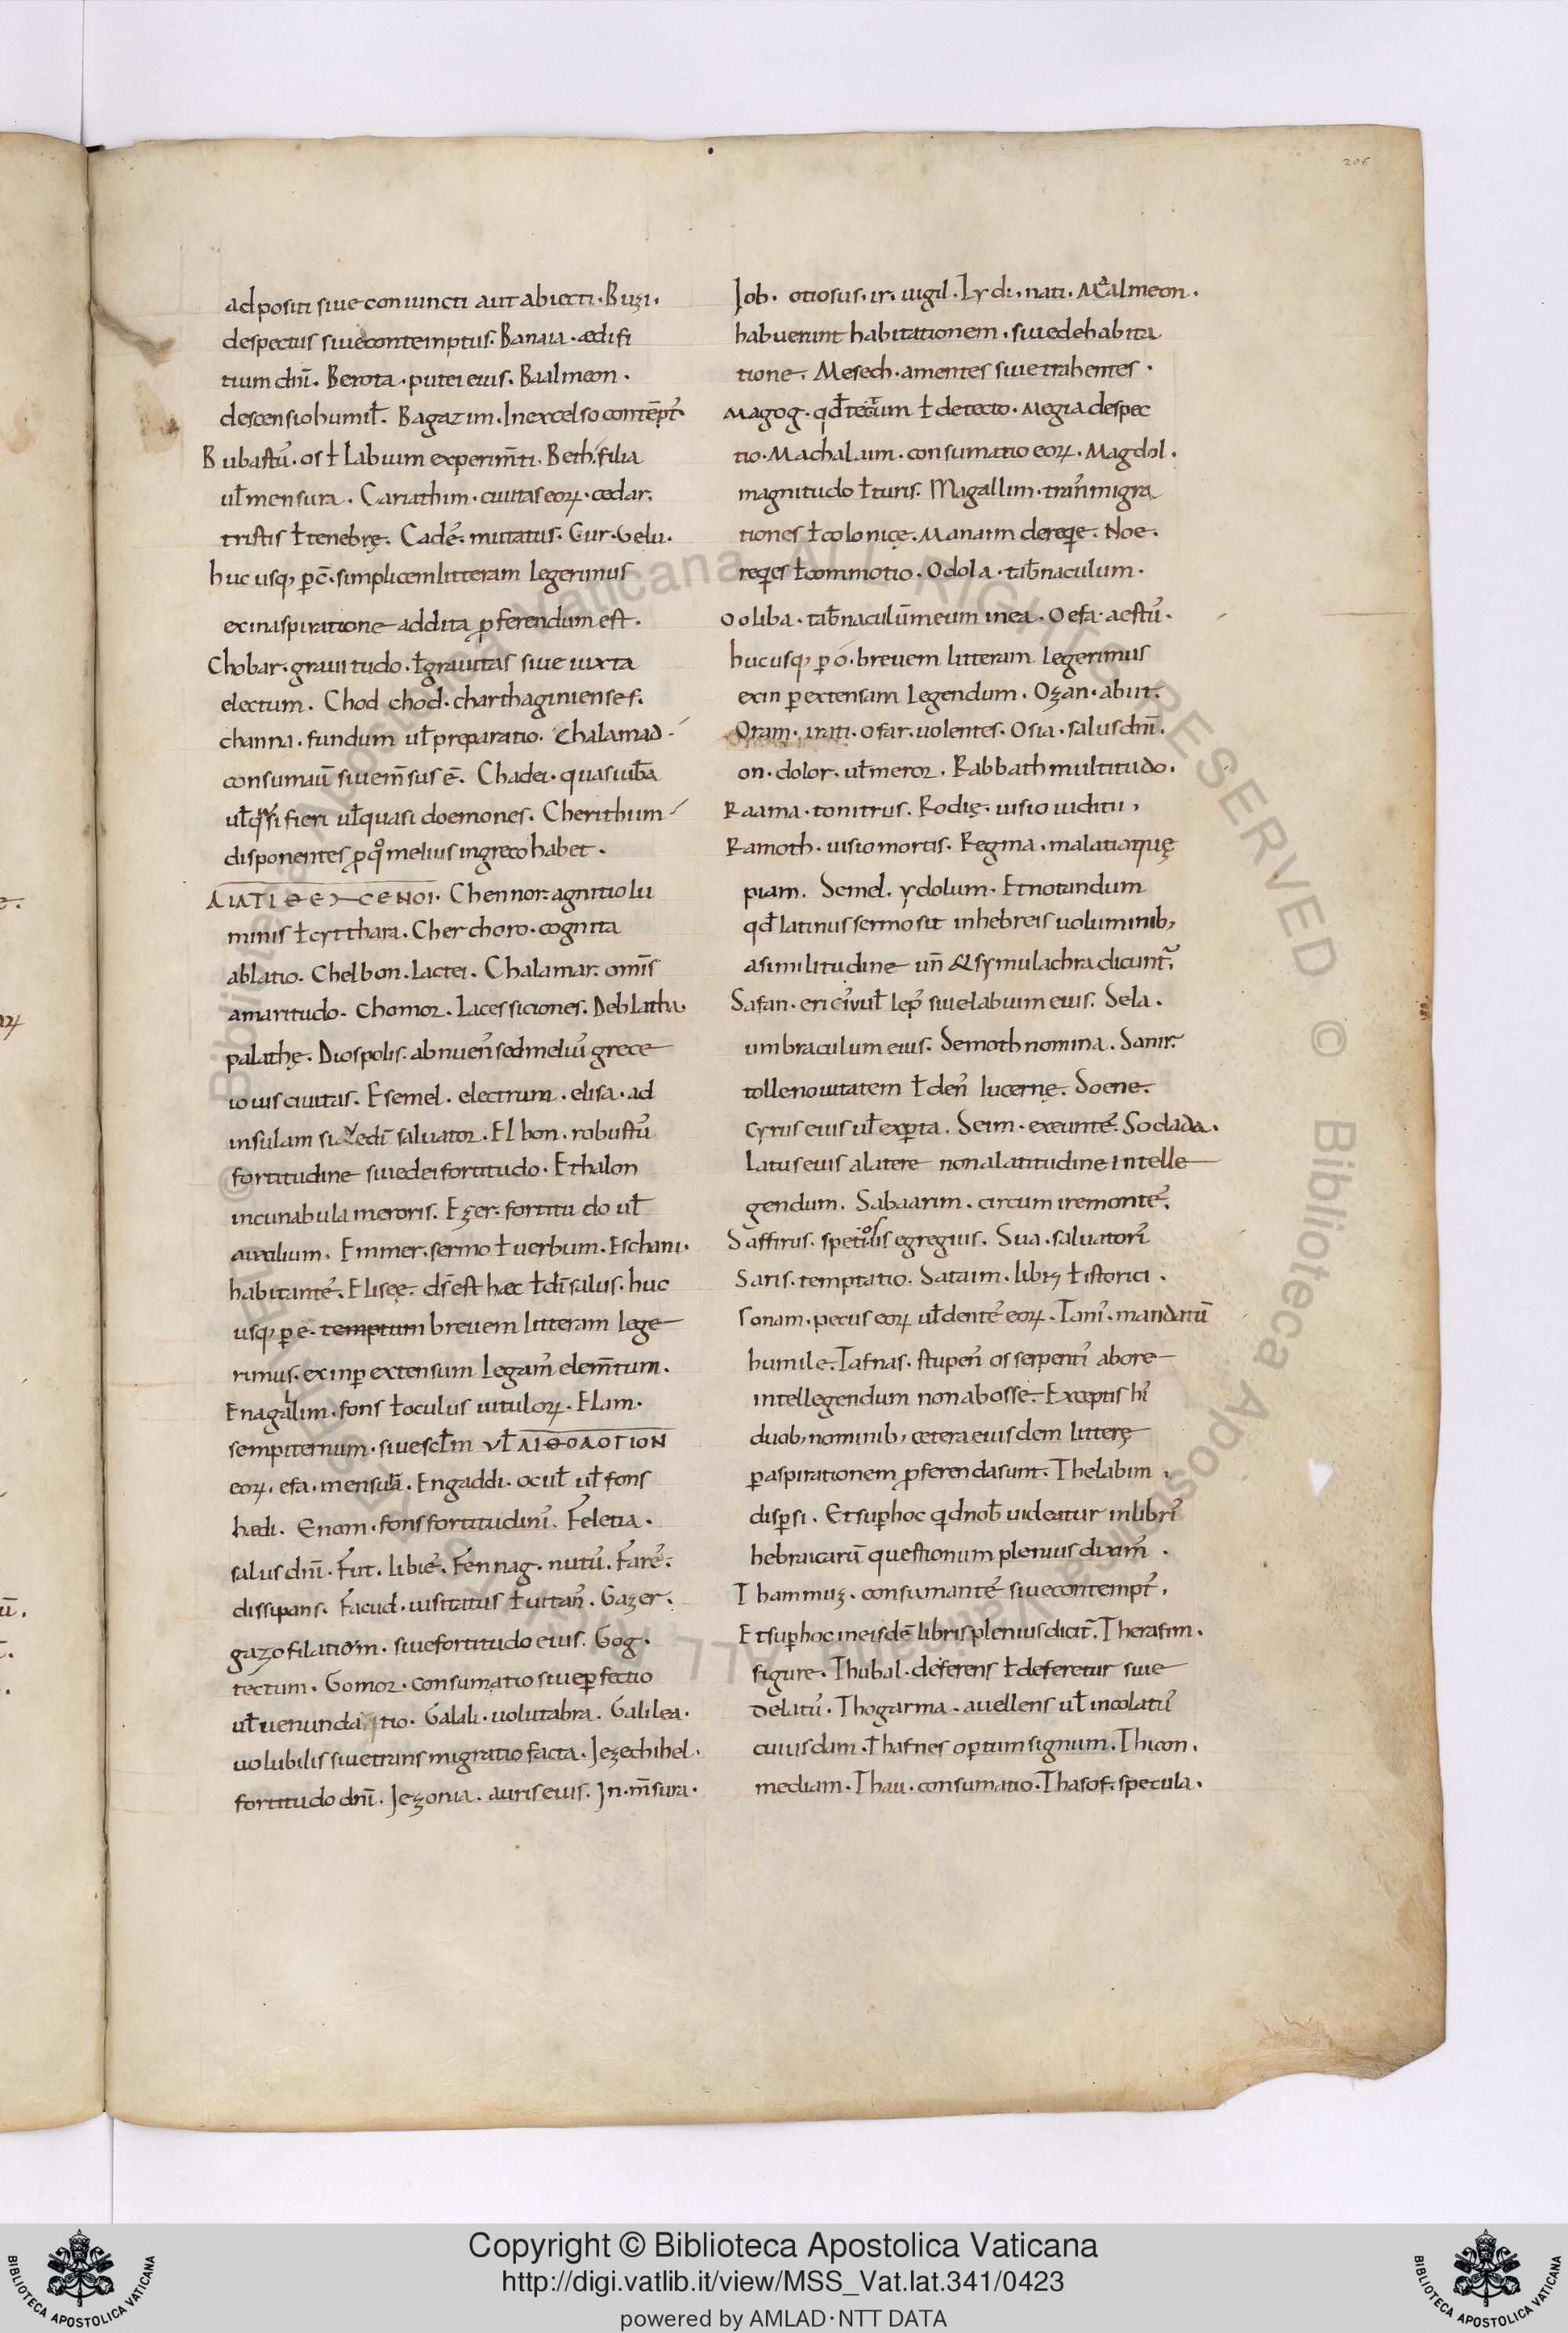 206
adpositi siue coniuncti aut abiecti. Buzi.
despectus siue contemptus. Banaia. ædifi
tium dnī. Berota. putei eius. Baalmeon.
descensio humił. Bagazim. In excelso contēpt᾽
Bubastū. os ł labium experim̄ti. Beth. filia
uł mensura. Cariathim. ciuitas eoꝝ. cedar.
tristis ł tenebrę. Cade᾽. mutatus. Cur. uelu.
huc usq; ꝑ c̄. simplicem litteram legerimus
exin aspiratione addita ꝓferendum est.
Chobar. grauitudo. ł grauitas siue iuxta
electum. Chod chod. charthaginienses.
channa. fundum uł preparatio. Chalamad
consumaū siue m̄sus ē. Chadei. quasi ub̄a
uł qͣsi fieri uł quasi doemones. Cherithim
disponentes ꝓ qͦ melius in greco habet.
ΔΙΑΤΙΘΕΧCΕΝΟΙ. Chennor. agnitio lu
minis ł cytthara. Cherchoro. cognita
ablatio. Chelbon. lactei. Chalamar. omīs
amaritudo. Chomor. lacessiciones. Deblatha.
palathę. Diospolis. abnuen᾽ sed meliu᾽ grece
iouis ciuitas. Esemel. electrum. elisa. ad
insulam siue dī saluator. Elbon. robustū
fortitudine siue dei fortitudo. Ethalon
incunabula meroris. Ezer. fortitudo uł
auxilium. Emmer. sermo ł uerbum. Eschani.
habitante᾽. Elisee. ds̄ est hæc ł dī salus. huc
usq; ꝑ e. temptum breuem litteram lege
rimus. exin ꝑ extensum legam᾽ elem̄tum.
Enagalim. fons ł oculus uituloꝝ. Elam.
sempiternum. siue scłm uł ΑΙΘΟΛΟΓΙΟΝ
eoꝝ. efa. mensura. Engaddi. ocuł uł fons
hædi. Enom. fons fortitudini᾽. Feletia.
salus dnī. Fut. libie᾽. Fennag. nutū. Fare᾽.
dissipans. Facud. uisitatus ł uitan᾽. Gazer.
gazofilatium. siue fortitudo eius. Gog.
tectum. Gomor. consumatio siue ꝑfectio
uł uenunda tio. Galali. uolutabra. Galilea.
uolubilis siue transmigratio facta. Jezechihel.
fortitudo dnī. Jezonia. auris eius. Jn. m̄sura.
Job. otiosus. ir. uigil. Lydi. nati. Maalmeon.
habuerunt habitationem. siue de habita
tione. Mesech. amentes siue trahentes.
Magog. qd̄ tectum ł detecto. Megia despec
tio. Machalaim. consumatio eoꝝ. Magdol.
magnitudo ł turis. Magallim. tran᾽migra
tiones ł colonicę. Manaim de reqe. Noe.
reqes ł commotio. Odola. tab̄naculum.
Ooliba. tab̄naculū meum in ea. Oefa. aestū.
huc usq; ꝑ o. breuem litteram legerimus
exin ꝑ extensam legendum. Ozan. abiit.
Oram. irati. Ofar. uolentes. Osia. salus dnī.
on. dolor. uł meror. Rabbath multitudo.
Raama. tonitrus. Rodię. uisio uiditu.
Ramoth. uisio mortis. Regma. malatia quę
piam. Semel. ydolum. Et notandum
qd̄ latinus sermo sit in hebreis uoluminib;
a similitudine un̄ & symulachra dicunt᾽.
Safan. erici᾽ uł lep᾽ siue labium eius. Sela.
umbraculum eius. Semoth nomina. Sanir.
tolle nouitatem ł den᾽ lucernę. Soene.
cyrus eius uł exꝑta. Seim. exeunte᾽. Sodada.
latus eius a latere non a latitudine intelle
gendum. Sabaarim. circumire monte᾽.
Saffirus. spetiosis egregius. Sua. saluatori᾽
Saris. temptatio. Sataim. libiꝫ ł istorici.
Sonam. pecus eoꝝ uł dente᾽ eoꝝ. Tani᾽. mandatū
humile. Tafnas. stupen᾽ os serpenti᾽ ab ore
intellegendum non ab osse. Exceptis hi᾽
duob; nominib; cetera eiusdem litterę
ꝑ aspirationem ꝓferenda sunt. Thelabim.
disꝑsi. Et suꝑ hoc qd nob̄ uideatur in libri᾽
hebraicarū questionum plenius dixim᾽.
Thammuz. consumante᾽ siue contempt᾽.
Et suꝑ hoc in eisdē libris plenius dicit᾽. Therafim.
figure. Thubal. deferens ł deferetur siue
delatū. Thogarma. auellens uł incolatū
cuiusdam. Thafnes oꝑtum signum. Thicon.
mediam. Thau. consumatio. Thasof. specula.
Copyright © Biblioteca Apostolica Vaticana
http://digi.vatlib.it/view/MSS_Vat.lat.341/0423
powered by AMLAD·NTT DATA